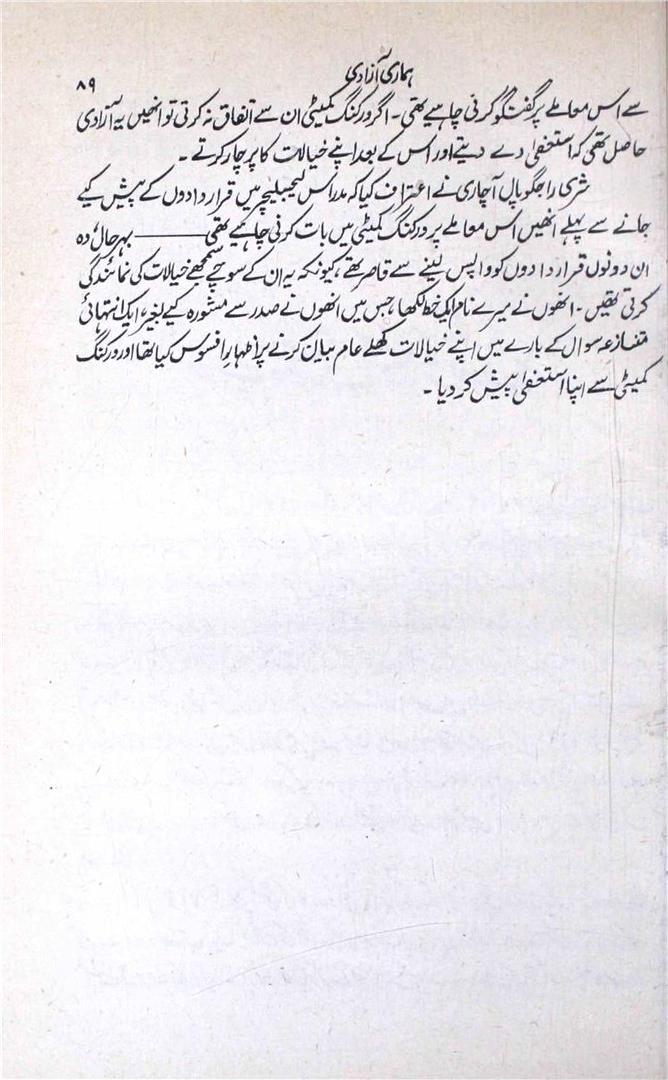 ہماری آزادی
۸۹
سے اس معاملے پر گفتگو کرنی چاہیے تھی۔ اگر ورکنگ کمیٹی ان سے اتفاق نہ کرتی تو انھیں یہ آزادی
حاصل تھی کہ استعفیٰ دے دیتے اور اس کے بعد اپنے خیالات کا پرچار کرتے۔
شری راجگوپال آچاری نے اعتراف کیا کہ مدراس لیجسلیچر میں قراردادوں کے پیش کیے
جانے سے پہلے انھیں اس معاملے پر ورکنگ کمیٹی میں بات کرنی چاہیے تھی ——— بہرحال، وہ
ان دونوں قراردادوں کو واپس لینے سے قاصر تھے، کیونکہ یہ ان کے سوچے سمجھے خیالات کی نمائندگی
کرتی تھیں۔ انھوں نے میرے نام ایک خط لکھا، جس میں انھوں نے صدر سے مشورہ کیے بغیر، ایک انتہائی
متنازعہ سوال کے بارے میں اپنے خیالات کھلے عام بیان کرنے پر اظہارِ افسوس کیا تھا اور ورکنگ
کمیٹی سے اپنا استعفیٰ پیش کر دیا۔